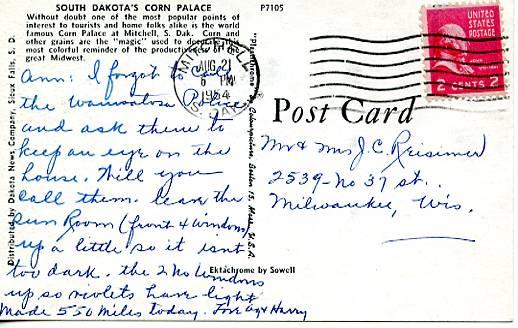 SOUTH DAKOTA'S CORN PALACE
P7105
Without doubt one of the most popular points of
interest to tourists and home folks alike is the world
famous Corn Palace at Mitchell, S. Dak. Corn and
other grains are the "magic" used to
most colorful reminder of the of the
great Midwest.
Ann: I forgot to call
the Wauwatosa Police
and ask them to
keep an eye on the
house. Will you
call them. leave the
Sun Room (front 4 windows)
up a little so it isnt
too dark. the 2 No Windows
up so violets have light
Made 550 Miles today.
Harry
Distributed by Dakota News Company, Sioux Falls, S. D.
MITCHELL
AUG 21
6 PM
1954
S. DAK.
UNITED
STATES
POSTAGE
JOHN
2 CENTS 2
Post Card
Mr & Mrs J.C. Reisimer
2539-No 37 st.
Milwaukee, Wis.
Ektachrome by Sowell